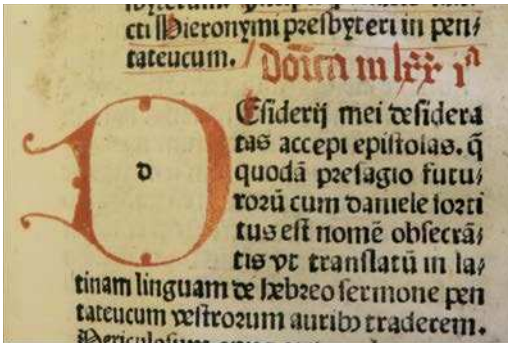 cti Hieronymi presbyteri in pen/
tateucum.
Dōica in lxx iᵃ
d
Esiderij mei desidera
tas accepi epistolas. q̄
quodā presagio futu/
rorū cum daniele sorti
tus est nomē obsecrā/
tis vt translatū in la/
tinam linguam de hebreo sermone pen
tateucum vestrorum auribꝫ traderem.